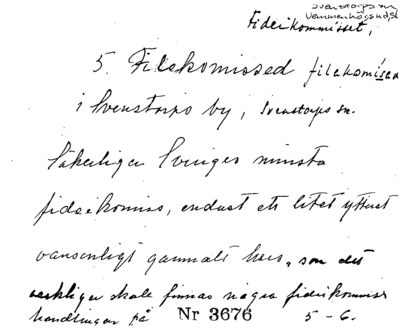 Svenstorps sn
Vemmenhögs hd, Sk
Fideikommisset,
5. Filekomissed filekomissed
i Svenstorps by, Svenstorps sn.
Säkerligen Sveriges minsta
fideikomiss, endast ett litet ytterst
vansenligt gammalt hus, som det
verkligen skall finnas några fideikommiss
handlingar på
Nr 3676 5-6.